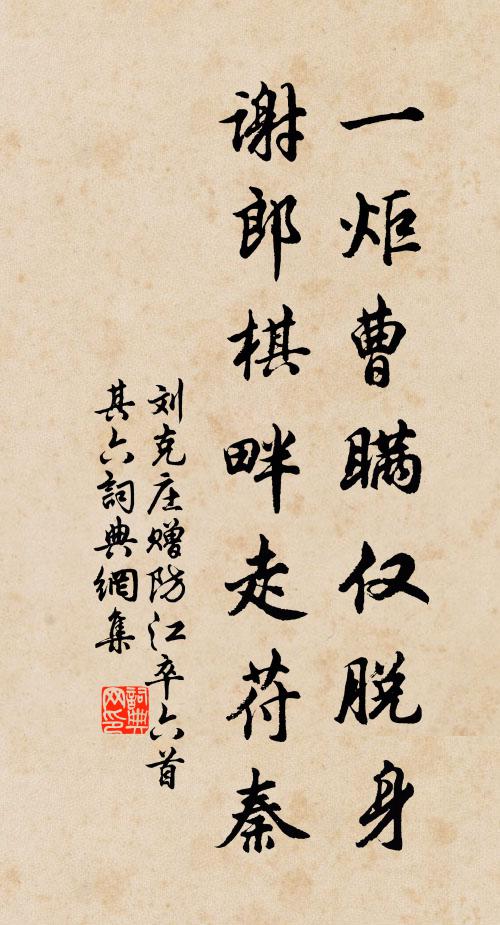 一炬曹瞒仅脱身
谢郎棋畔走苻秦
刘克庄赠防江卒六首
其六詞典網集
詞典
网印